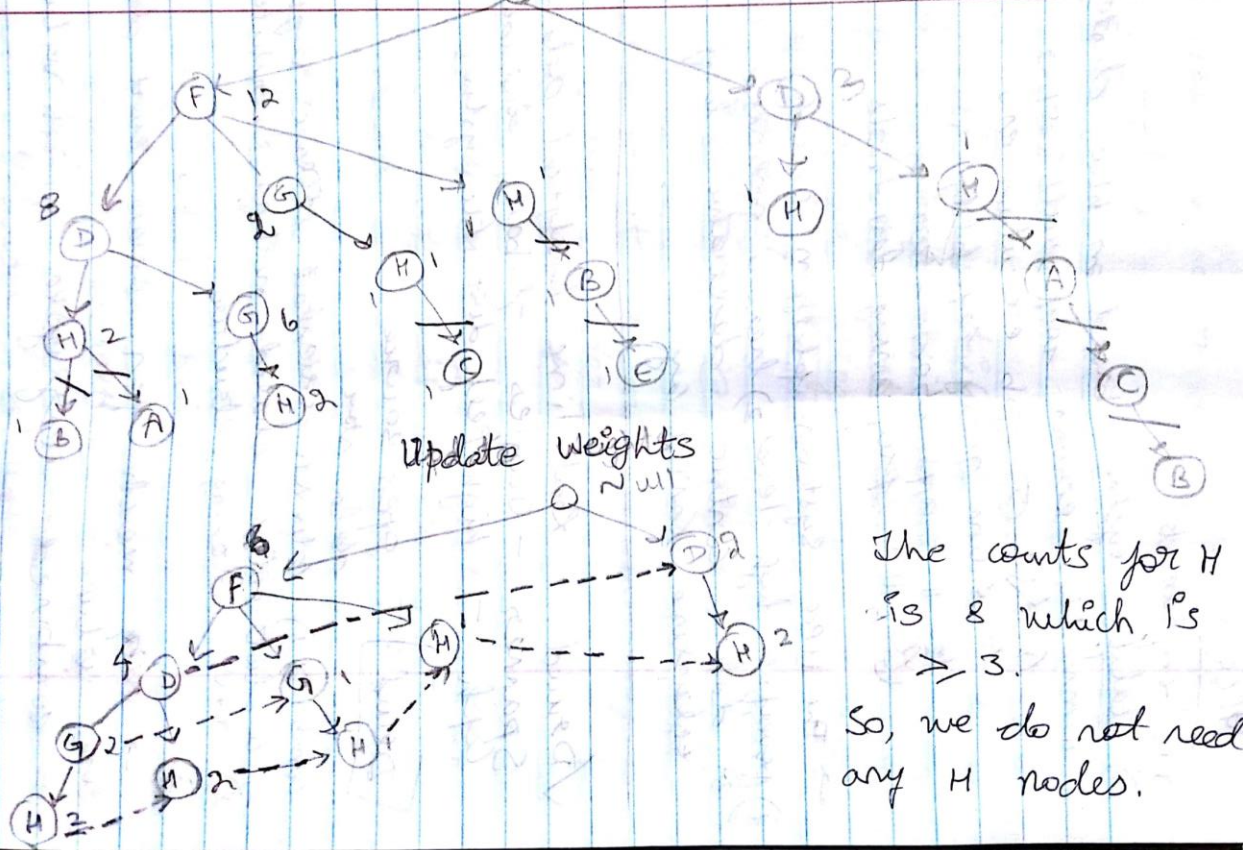 F 12 D 3
8 D G 2 H 1 H 1 1 H H 1
H 2 G 6 1 B A
1 B A 1 H 2 1 C 1 C
B
Update weights
Null
6 F D 2
4 D G 1 H 1 H 2
G 2 H 2 H 1
H 2
The counts for H
is 8 which is
≥ 3.
So, we do not need
any H nodes.